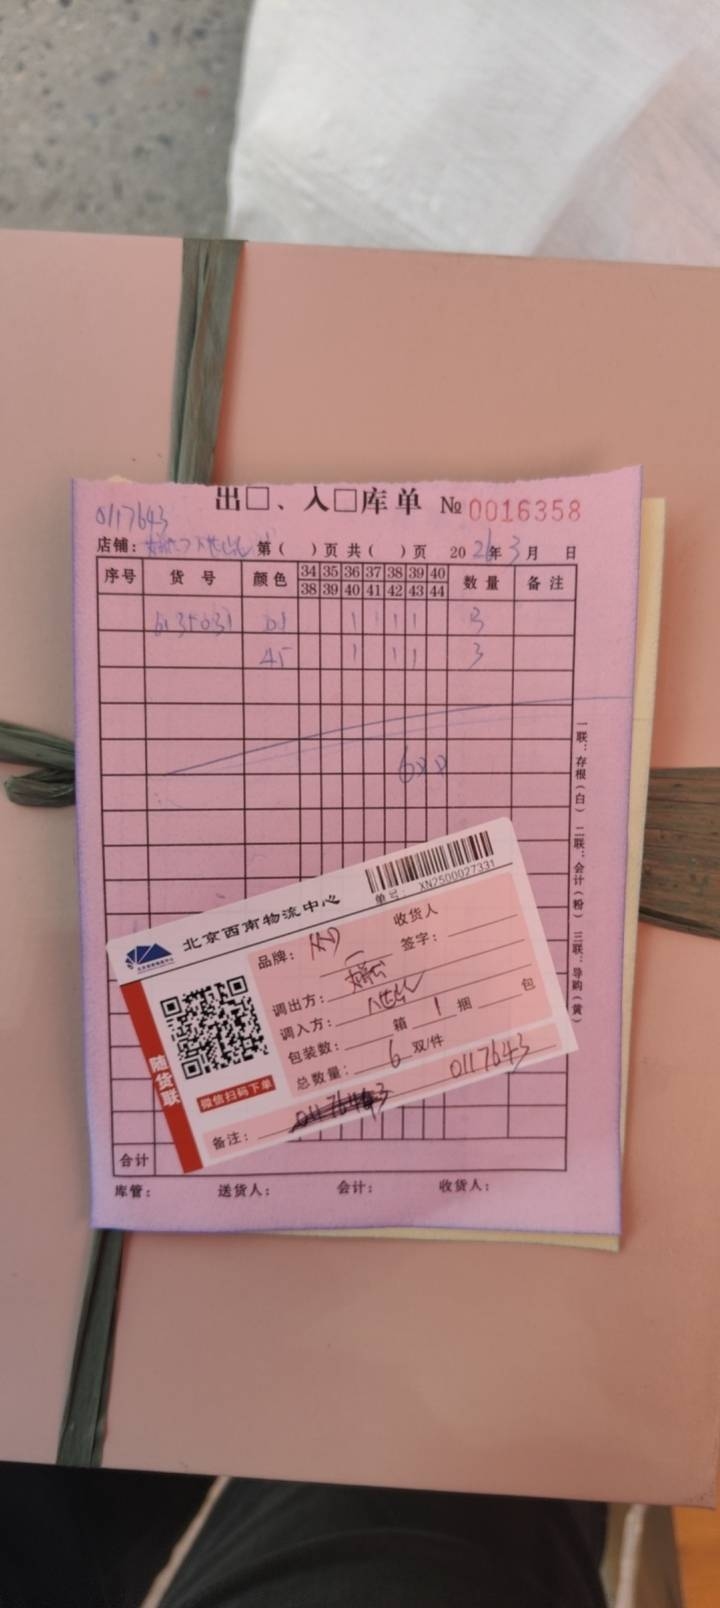 出□、入□库单 № 0016358
0117643
店铺: 第( )页 共( )页 2026年3月 日
序号 货号 颜色 34 35 36 37 38 39 40 数量 备注
38 39 40 41 42 43 44
6135031 1 1 1 3
45 1 1 1 3
688
一联:存根(白) 二联:会计(粉) 三联:导购(黄)
单号 XN2500027331
北京西南物流中心
收货人
品牌: 签字:
调出方:
调入方:
包装数: 箱 1 捆 包
总数量: 6 双/件
随货联
微信扫码下单
备注: 0117643
合计
库管: 送货人: 会计: 收货人: